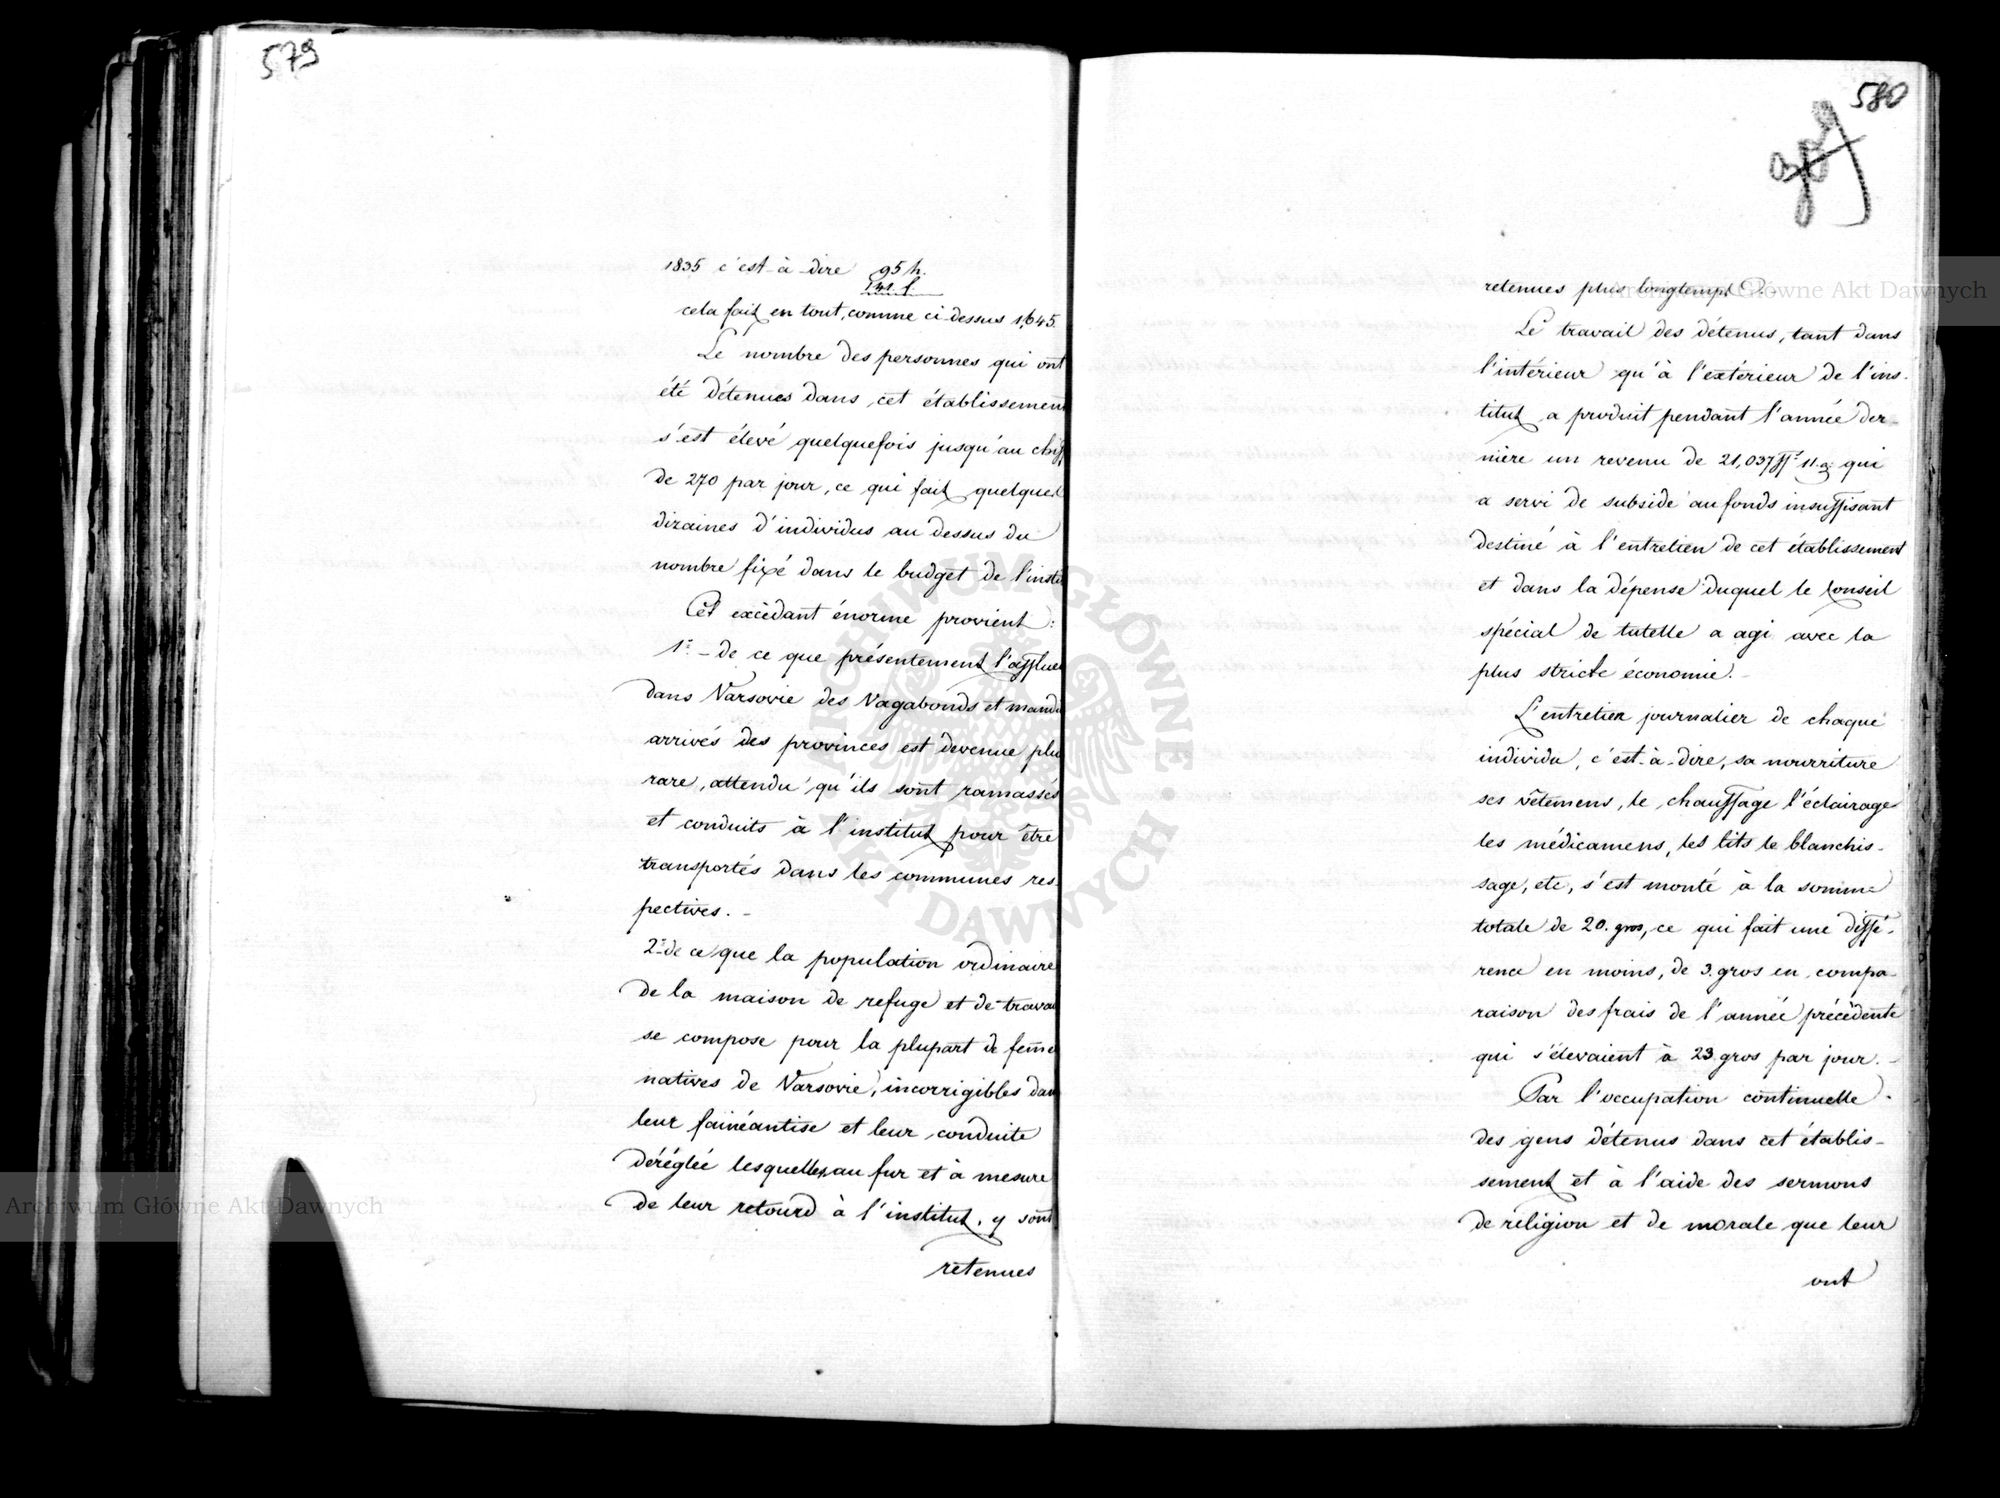 579
1835 c'est-à-dire 95 h.
141. f.
cela fait en tout, comme ci-dessus 1,645.
Le nombre des personnes qui ont
été détenues dans cet établissement
s'est élevé quelquefois jusqu'au chiff
de 270 par jour, ce qui fait quelques
dizaines d'individus au dessus du
nombre fixé dans le budget de l'instit
Cet excédant énorme provient:
1º - de ce que présentement l'afflue
dans Varsovie des Vagabonds et mandi
arrivés des provinces est devenue plu
rare, attendu qu'ils sont ramassés
et conduits à l'institut pour être
transportés dans les communes res-
pectives. -
2º de ce que la population ordinaire
de la maison de refuge et de travai
se compose pour la plupart de femme
natives de Varsovie, incorrigibles dan
leur fainéantise et leur conduite
déréglée lesquelles, au fur et à mesure
de leur retourd à l'institut, y sont
retenues
580
retenues plus longtemps.
Le travail des détenus, tant dans
l'intérieur qu'à l'extérieur de l'ins-
titut a produit pendant l'année der-
nière un revenu de 21,037 ff. 11. g. qui
a servi de subside au fonds insuffisant
destiné à l'entretien de cet établissement
et dans la dépense duquel le Conseil
spécial de tutelle a agi avec la
plus stricte économie. -
L'entretien journalier de chaque
individu, c'est-à-dire, sa nourriture
ses vêtemens, le chauffage l'éclairage
les médicamens, les lits le blanchis-
sage, etc, s'est monté à la somme
totale de 20. gros, ce qui fait une diffé-
rence en moins, de 3. gros en compa-
raison des frais de l'année précédente
qui s'élevaient à 23 gros par jour. -
Par l'occupation continuelle
des gens détenus dans cet établis-
sement et à l'aide des sermons
de réligion et de morale que leur
ont
Archiwum Główne Akt Dawnych
Archiwum Główne Akt Dawnych
ARCHIWUM GŁÓWNE AKT DAWNYCH